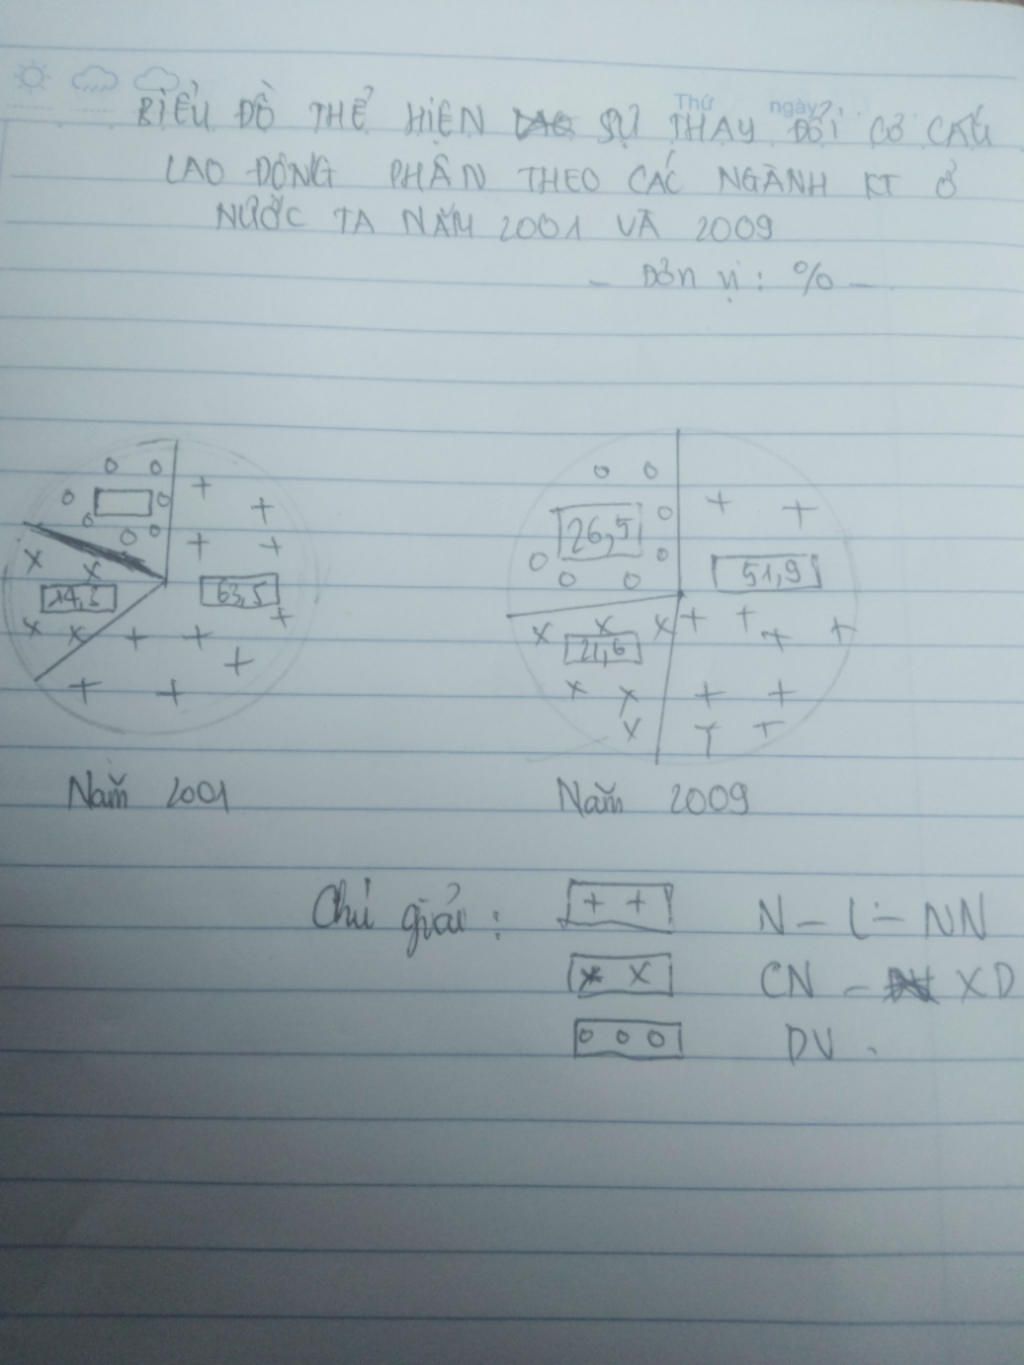 Thứ ngày
BIỂU ĐỒ THỂ HIỆN SỰ THAY ĐỔI CƠ CẤU
LAO ĐỘNG PHÂN THEO CÁC NGÀNH KT Ở
NƯỚC TA NĂM 2001 VÀ 2009
– Đơn vị : % –
26,5
51,9
14,3
63,5
21,6
Năm 2001
Năm 2009
Chú giải :
N – L – NN
CN – XD
DV .